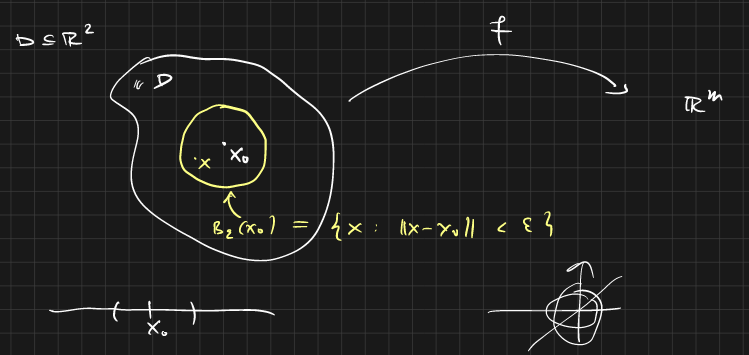 D ⊆ ℝ²
f
D
ℝᵐ
x x₀
B₂(x₀) = { x : ||x - x₀|| < ε }
x₀